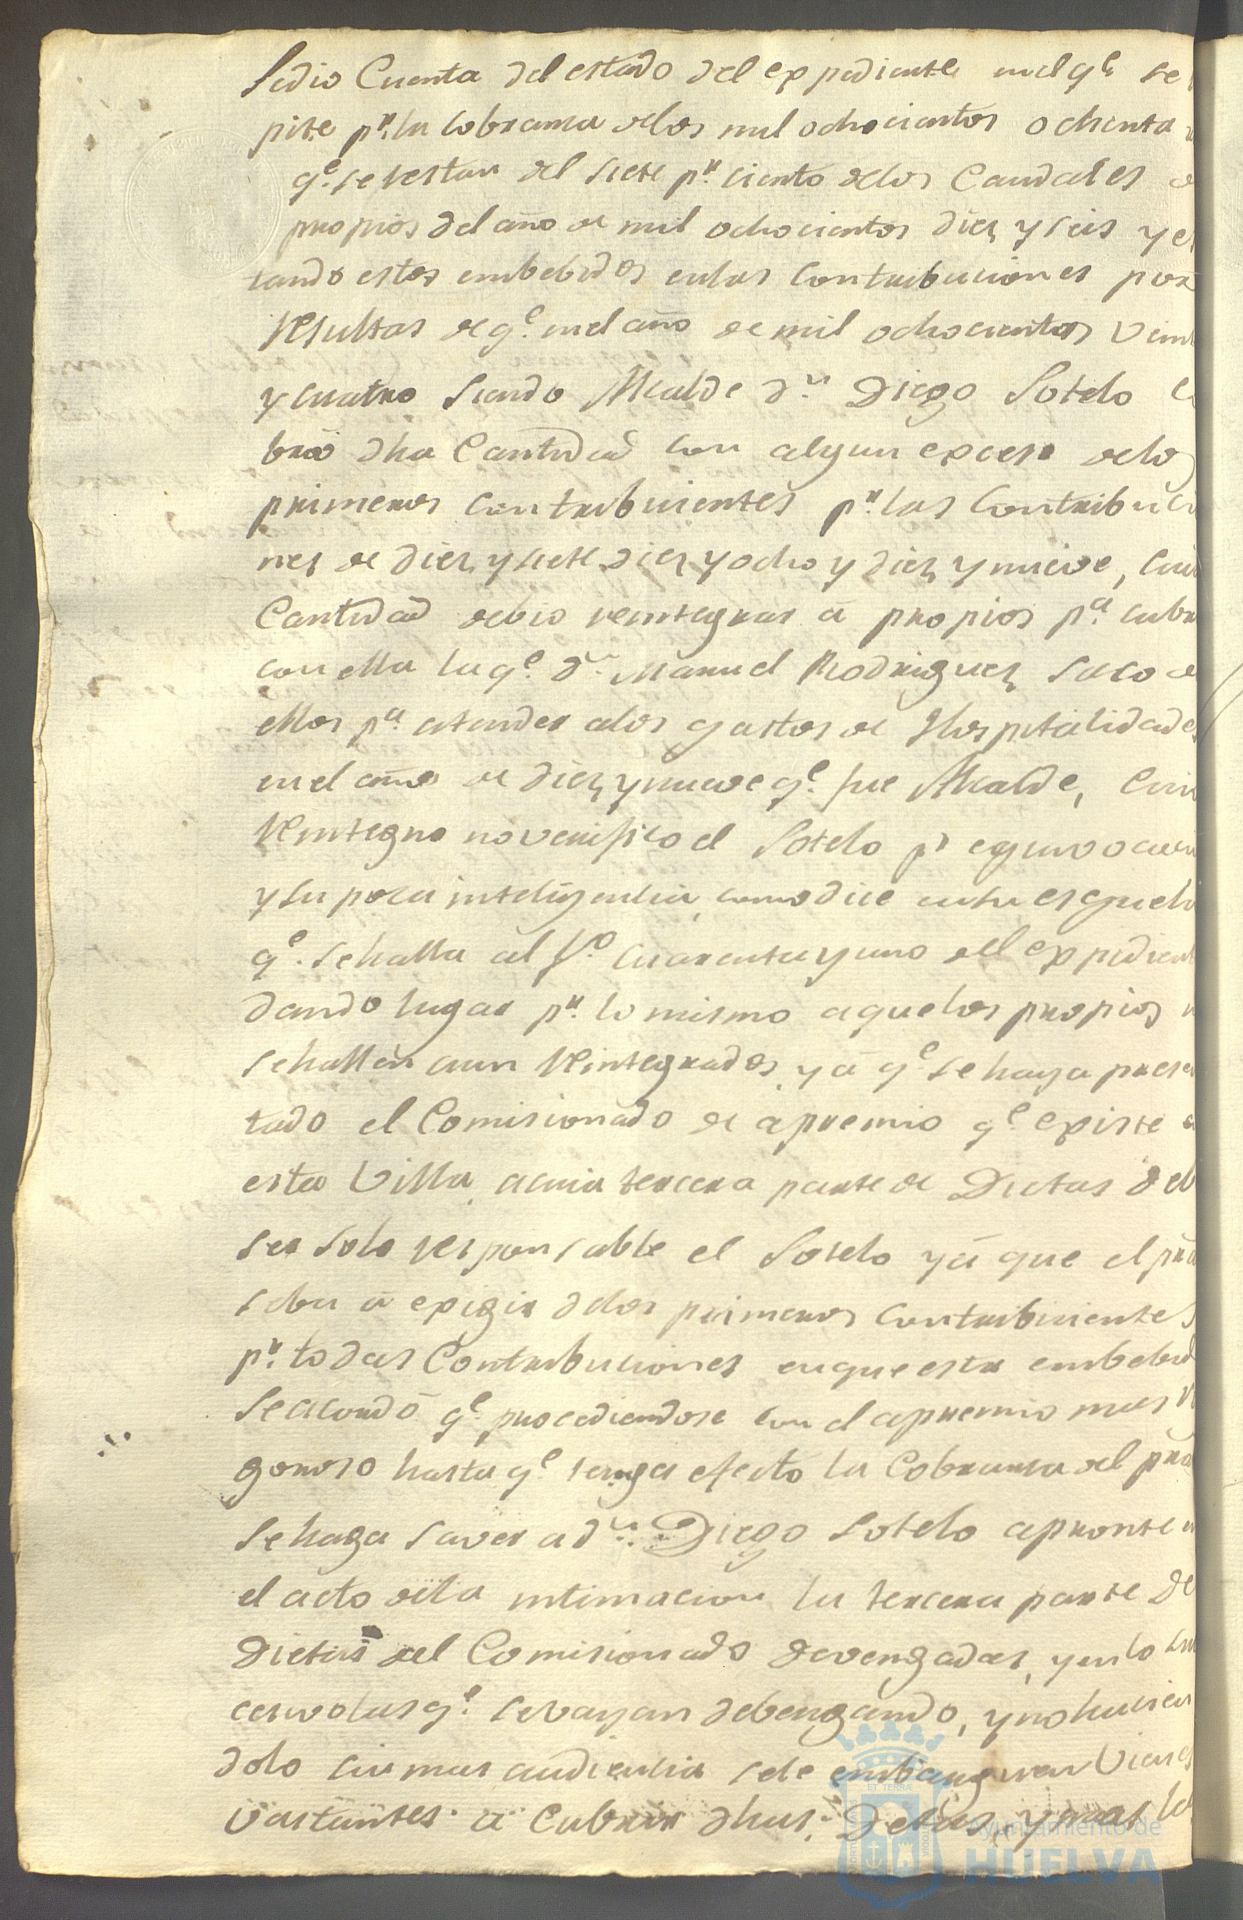 Sedio Cuenta del estado del expediente enel qe. se
pite pr. la cobranza delos mil ochocientos ochenta
qe. se restan del siete pr. ciento delos Caudales
propios del año de mil ochocientos diez y seis y es
tando estos embebidos enlas contribuciones por
resultas de qe. enel año de mil ochocientos veint
y cuatro siendo Alcalde dn. Diego Sotelo co
bró dha Cantidad con algun exceso delos
primeros contribuientes pr. las contribucio
nes de diez y siete diez y ocho y diez y nueve, cuia
Cantidad debio reintegrar á propios pa. cubr
con ella la qe. dn. Manuel Rodriguez saco de
ellos pa. atender alos gastos de Hospitalidades
enel año de diez y nueve qe. fue Alcalde, cuio
reintegro no verifico el Sotelo pr equivocacn
y su poca inteligencia como dice en su esquela
qe. se halla al fo. cuarenta y uno del expedient
dando lugar pr. lo mismo aquelos propios n
se hallen aun reintegrados, y á qe. se haya presen
tado el Comisionado de apremio qe. existe
esta Villa, acuia tercera parte de Dietas deb
ser solo responsable el Sotelo yá que el pral
seba á exigir delos primeros contribuientes
pr. todas Contribuciones en que esta embebid
Se acordó qe. procediendose con el apremio mas ri
goroso hasta qe. tenga efecto la Cobranza del pral
se haga saver a dn. Diego Sotelo apronte en
el acto dela intimacion la tercera parte de
Dietas del Comisionado devengadas, y en lo su
cesivo las qe. se vayan debengando, y no hacien
dolo sin mas audiencia sele embarguen Vienes
vastantes á Cubrir dhas. Dietas, y mas
Ayuntamiento de
HUELVA